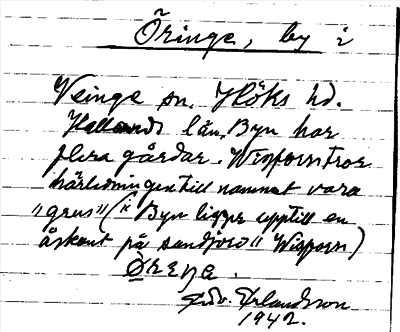 Öringe, by i
Veinge sn. Höks hd.
Hallands län. Byn har
flera gårdar. Wisporn tror
härledningen till namnet vara
"grus" (i: Byn ligger upptill en
åskant på sandjord" Wisporn)
Erlandsson
1942.